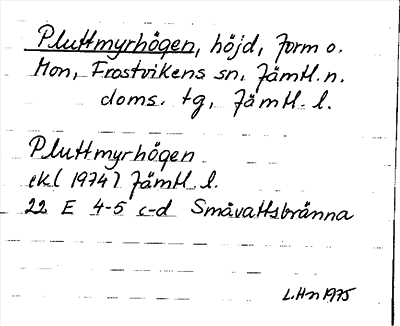 Pluttmyrhögen, höjd, form o.
Mon, Frostvikens sn, Jämtl. n.
doms. tg, Jämtl. l.
Pluttmyrhögen
ekl 1974? Jämtl. l.
22 E 4-5 c-d Småvattsbränna
L.H-n 1975